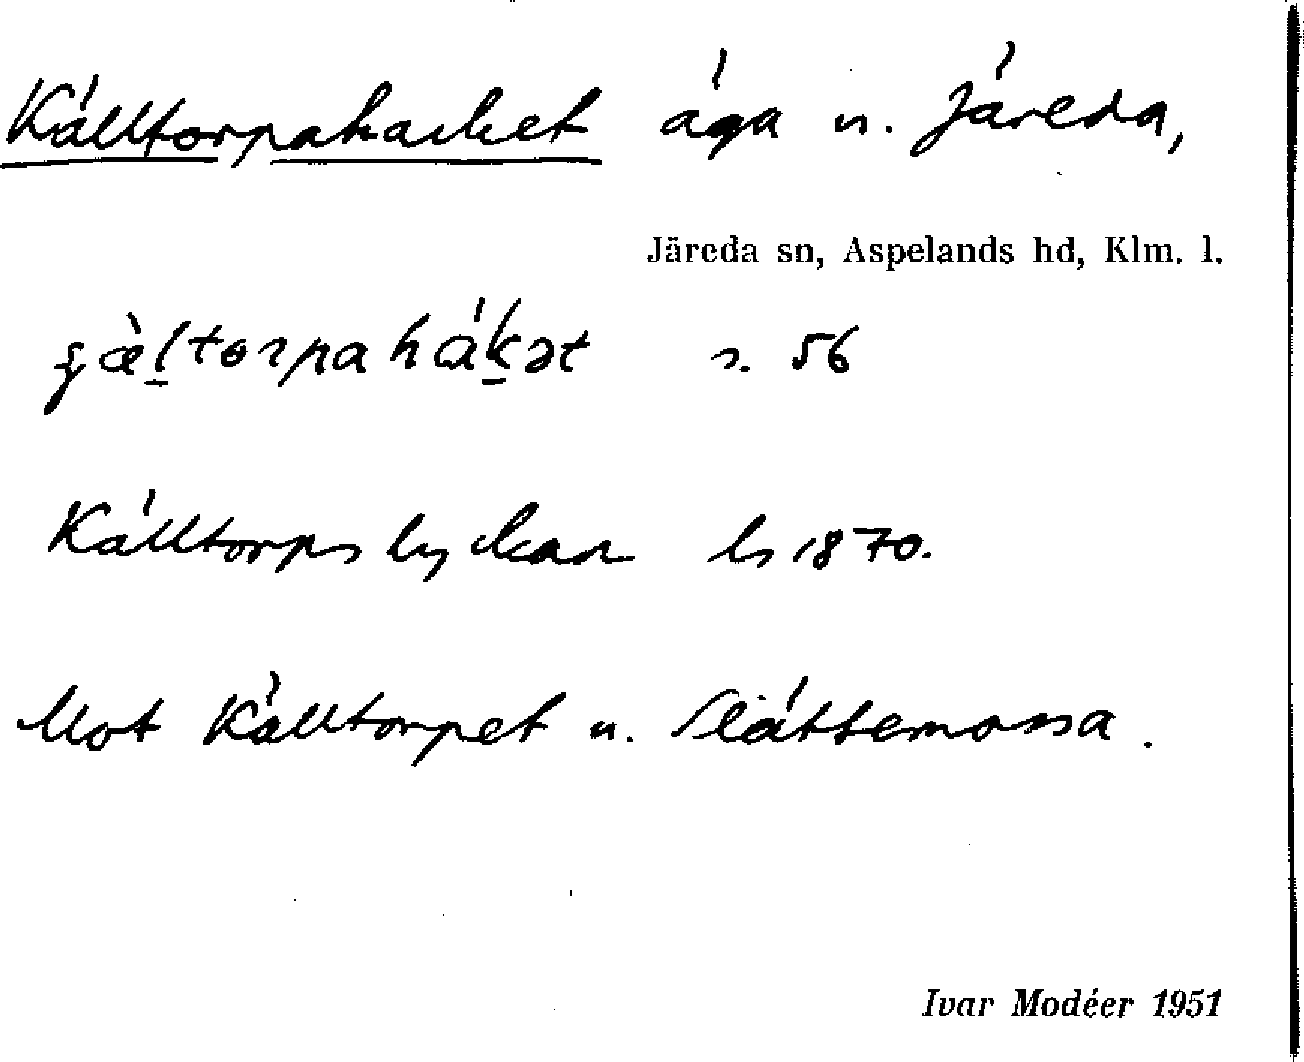 Källtorpahacket äga u. Järeda,
Järeda sn, Aspelands hd, Klm. l.
s. 56
Källtorpslyckan ls 1870.
Mot Källtorpet u. Slättemossa.
Ivar Modéer 1951